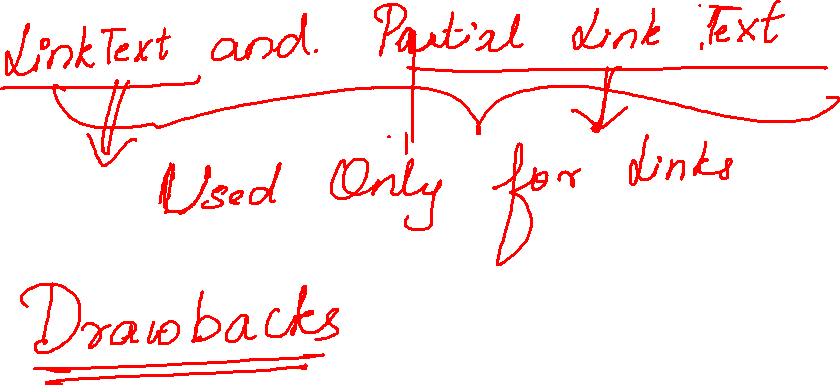 LinkText and. Partial Link Text
Used Only for Links
Drawbacks